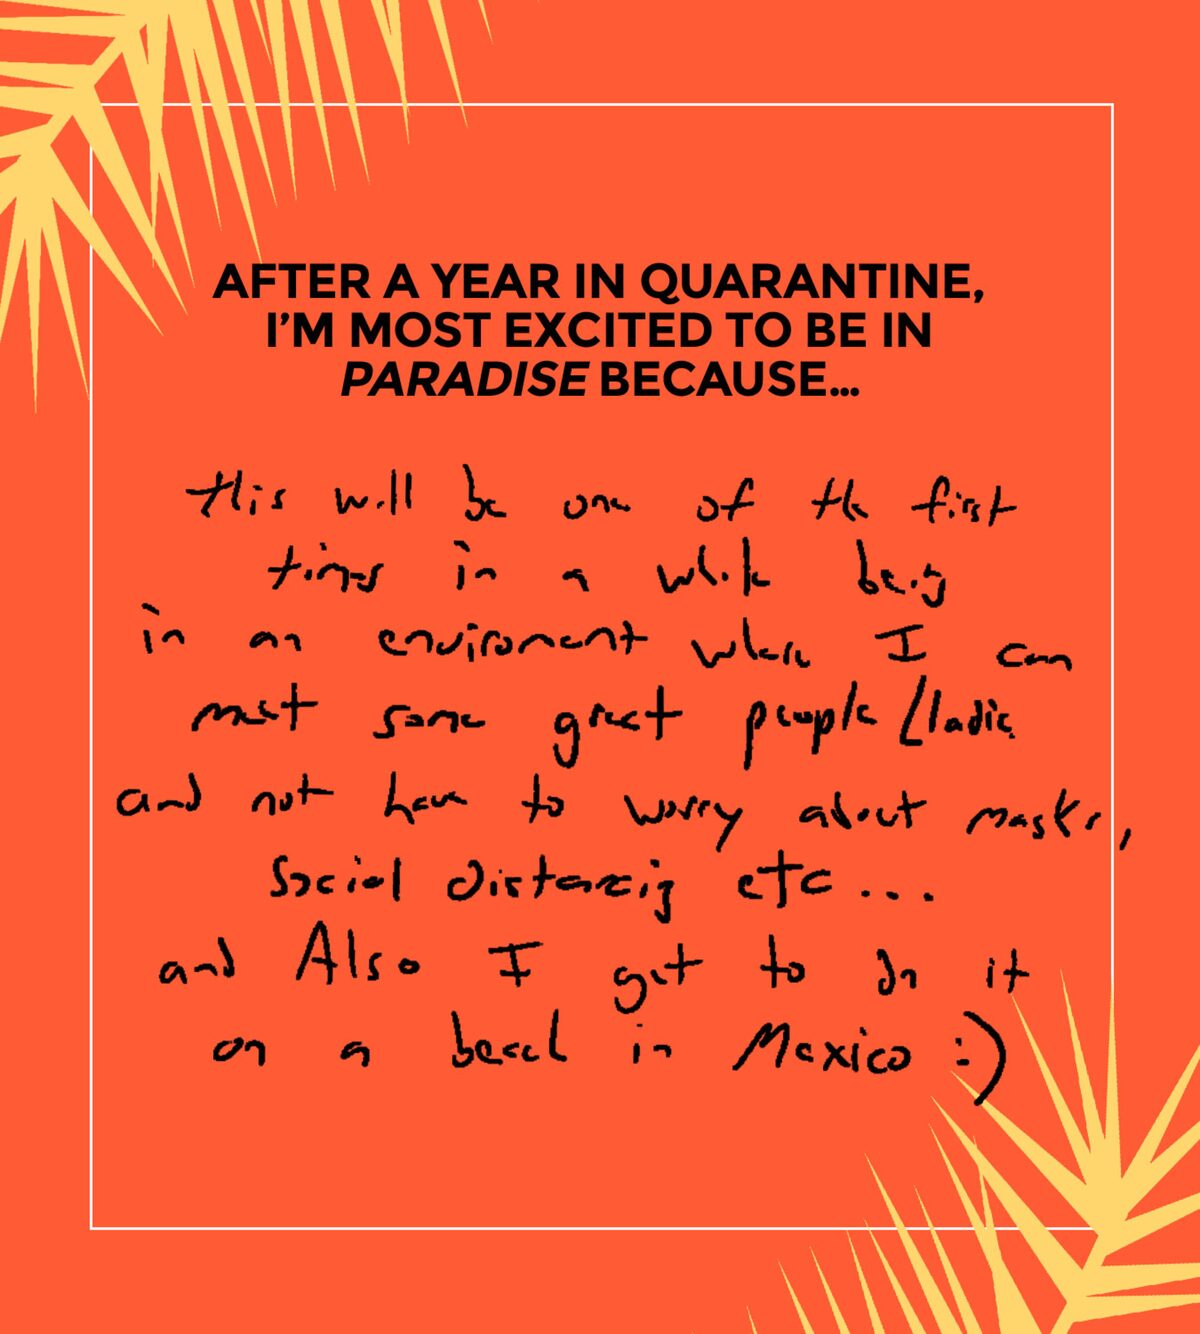 AFTER A YEAR IN QUARANTINE,
I'M MOST EXCITED TO BE IN
PARADISE BECAUSE...
this will be one of the first
times in a while being
in an enviroment where I can
meet some great people/ladies
and not have to worry about masks,
Social Distancing etc...
and Also I get to do it
on a beach in Mexico :)